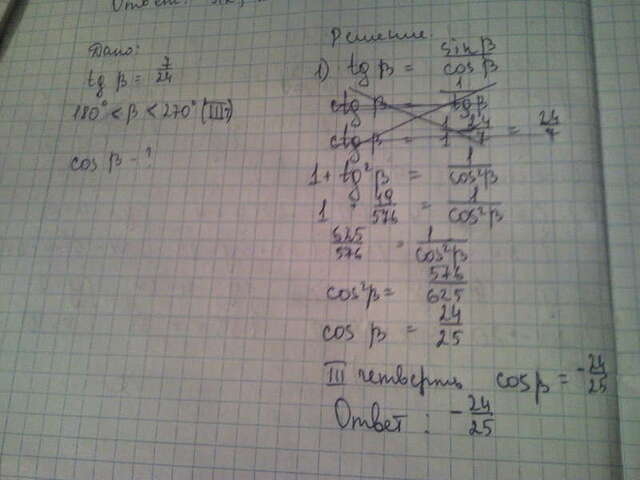 Ответ:
Дано:
tg β = 7/24
180° < β < 270° (III)
cos β - ?
Решение:
1) tg β = sin β / cos β
ctg β = 1 / tg β
ctg β = 1·24 / 1·7 = 24/7
1 + tg² β = 1 / cos² β
1 + 49/576 = 1 / cos² β
625/576 = 1 / cos² β
cos² β = 576/625
cos β = 24/25
III четверть cos β = -24/25
Ответ: -24/25